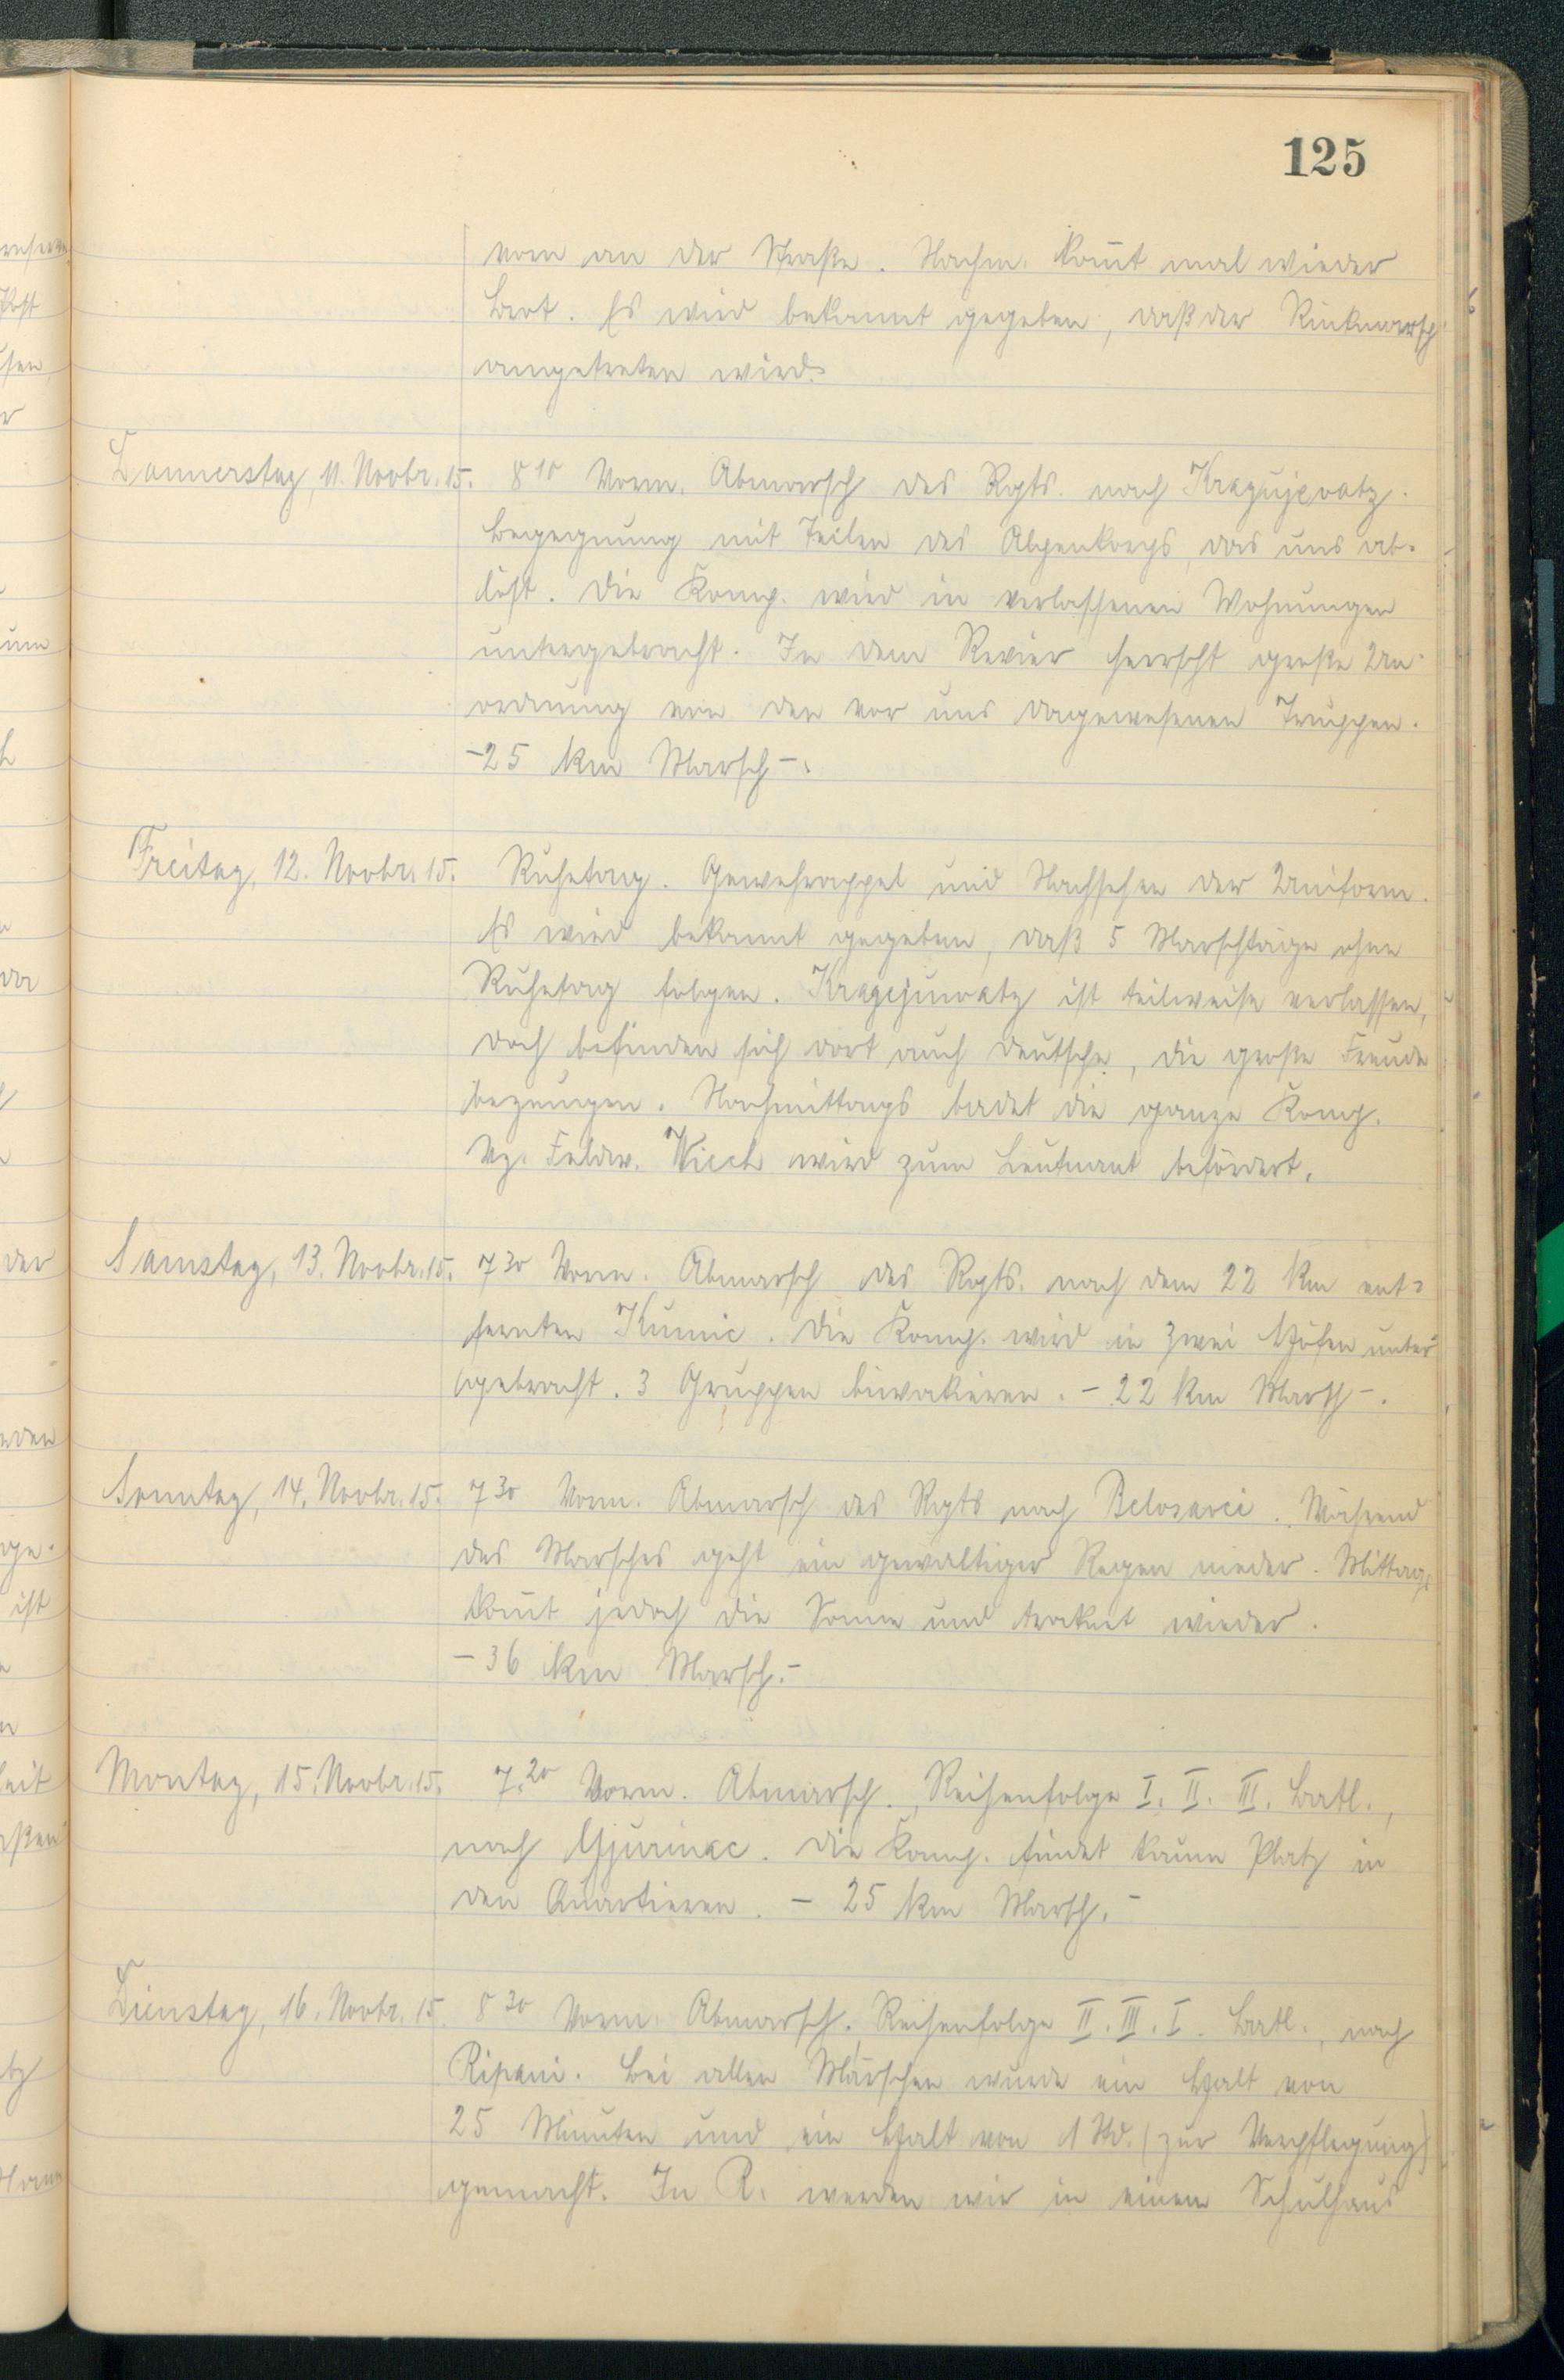 125
vorn an der Straße. Nachm. kom̄t mal wieder
Brot. Es wird bekannt gegeben, daß der Rückmarsch
angetreten wird.
Donnerstag, 11. Novbr. 15. 8¹⁰ Vorm. Abmarsch des Rgts. nach Kragujevatz.
Begegnung mit Teilen des Alpenkorps, das uns ab-
löst. Die Komp. wird in verlassenen Wohnungen
untergebracht. In dem Revier herrscht große Un-
ordnung von den vor uns dagewesenen Truppen.
- 25 km Marsch -.
Freitag, 12. Novbr. 15. Ruhetag. Gewehrappel und Nachsehen der Uniform.
Es wird bekannt gegeben, daß 5 Marschtäge ohne
Ruhetag folgen. Kragejuvatz ist teilweise verlassen,
doch befinden sich dort auch Deutsche, die große Freude
bezeugen. Nachmittags badet die ganze Komp.
Vz. Feldw. Wiech wird zum Leutnant befördert.
Samstag, 13. Novbr. 15. 7³⁰ Vorm. Abmarsch des Rgts. nach dem 22 km ent-
fernten Kumic. Die Komp. wird in zwei Höfen unter-
gebracht. 3 Gruppen biwakieren. - 22 km Marsch -.
Sonntag, 14. Novbr. 15. 7³⁰ Vorm. Abmarsch des Rgts nach Belosavci. Während
des Marsches geht ein gewaltiger Regen nieder. Mittags
kom̄t jedoch die Sonne und trocknet wieder.
- 36 km Marsch. -
Montag, 15. Novbr. 15. 7.²⁰ Vorm. Abmarsch. Reihenfolge I. II. III. Batl.,
nach Gjurinac. Die Komp. findet kaum Platz in
den Quartieren. - 25 km Marsch. -
Dienstag, 16. Novbr. 15. 8³⁰ Vorm. Abmarsch. Reihenfolge II. III. I. Batl., nach
Ripani. Bei allen Märschen wurde ein Halt von
25 Minuten und ein Halt von 1 Std. (zur Verpflegung)
gemacht. In R. werden wir in einem Schulhaus